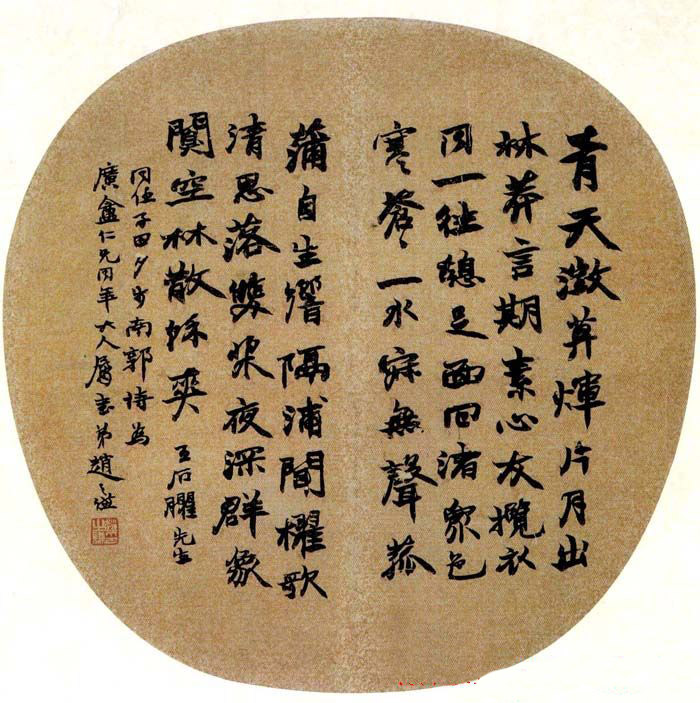 青天澂煇片月出
林莽言期素心友攬衣
同一徃憩足面回渚眾色
寒蒼〻一水寂無聲菰
蒲自生響隔浦聞櫂歌
清思落雙槳夜深群象
闃空林散餘爽 王石臞先生
同任子田夕步南郭詩為
廣盦仁兄同年大人屬書弟趙之謙